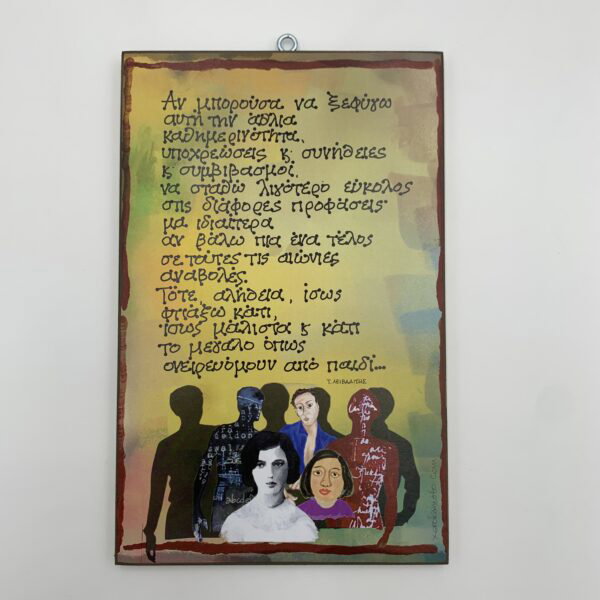 Αν μπορούσα να ξεφύγω
αυτή την άθλια
καθημερινότητα,
υποχρεώσεις κ συνήθειες
κ συμβιβασμοί,
να σταθώ λιγότερο εύκολος
στις διάφορες προφάσεις·
μα ιδιαίτερα
αν βάλω πια ένα τέλος
σε τούτες τις αιώνιες
αναβολές.
Τότε, αλήθεια, ίσως
φτιάξω κάτι,
ίσως μάλιστα κ κάτι
το μεγάλο όπως
ονειρευόμουν από παιδί...
Τ. ΛΕΙΒΑΔΙΤΗΣ
abcde